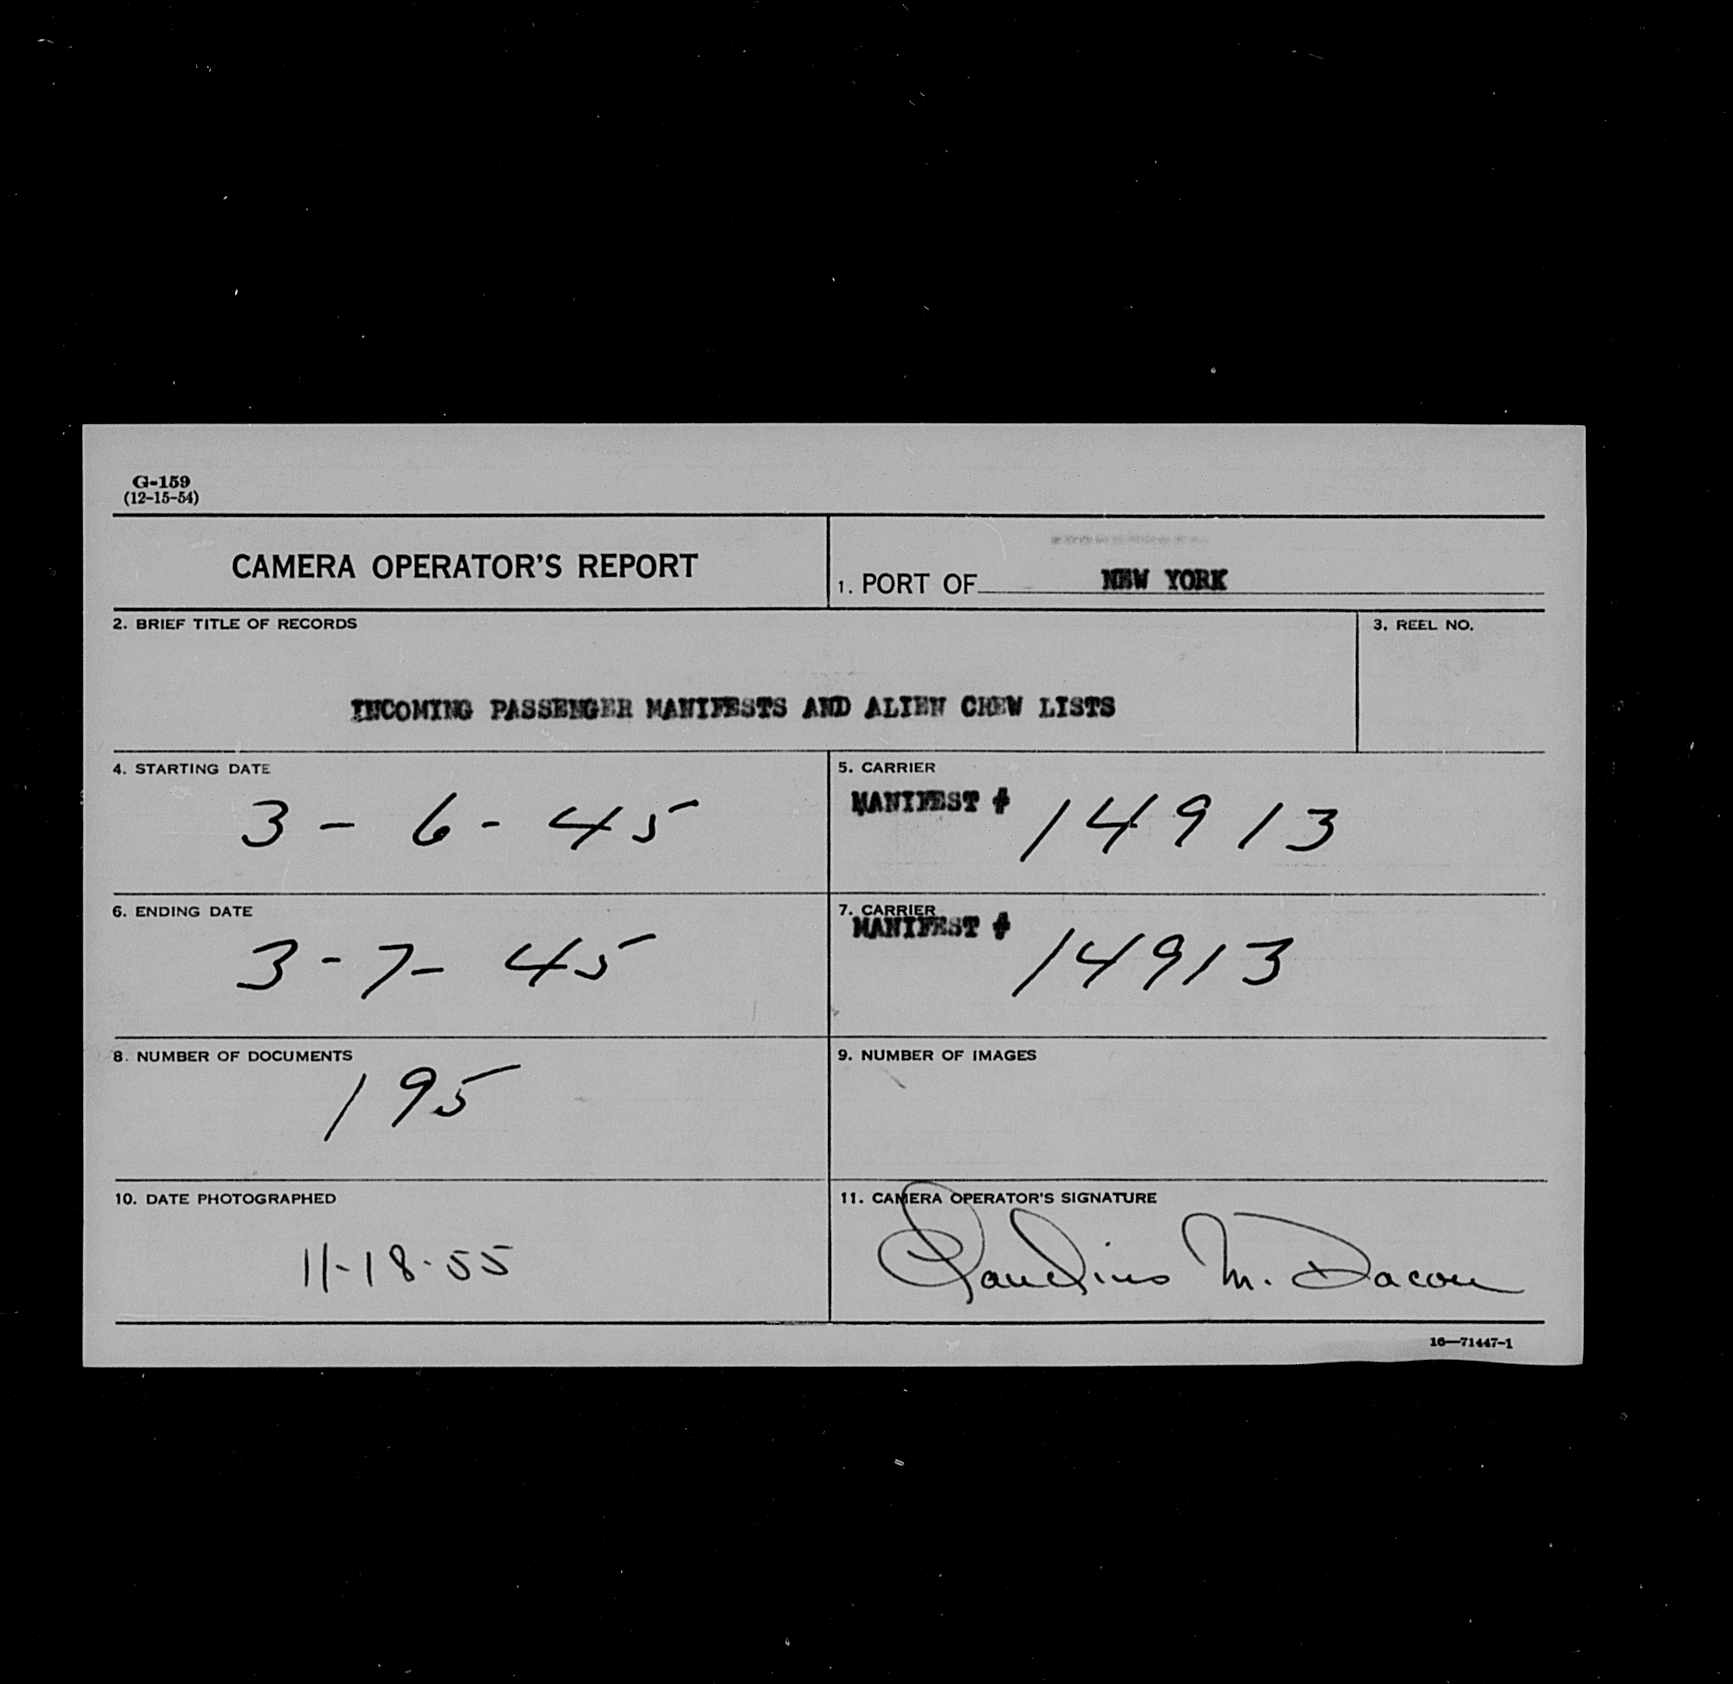 G-159
(12-15-54)
CAMERA OPERATOR'S REPORT
1. PORT OF NEW YORK
2. BRIEF TITLE OF RECORDS
3. REEL NO.
INCOMING PASSENGER MANIFESTS AND ALIEN CREW LISTS
4. STARTING DATE
3-6-45
5. CARRIER
MANIFEST # 14913
6. ENDING DATE
3-7-45
7. CARRIER
MANIFEST # 14913
8. NUMBER OF DOCUMENTS
195
9. NUMBER OF IMAGES
10. DATE PHOTOGRAPHED
11-18-55
11. CAMERA OPERATOR'S SIGNATURE
M.
16—71447-1